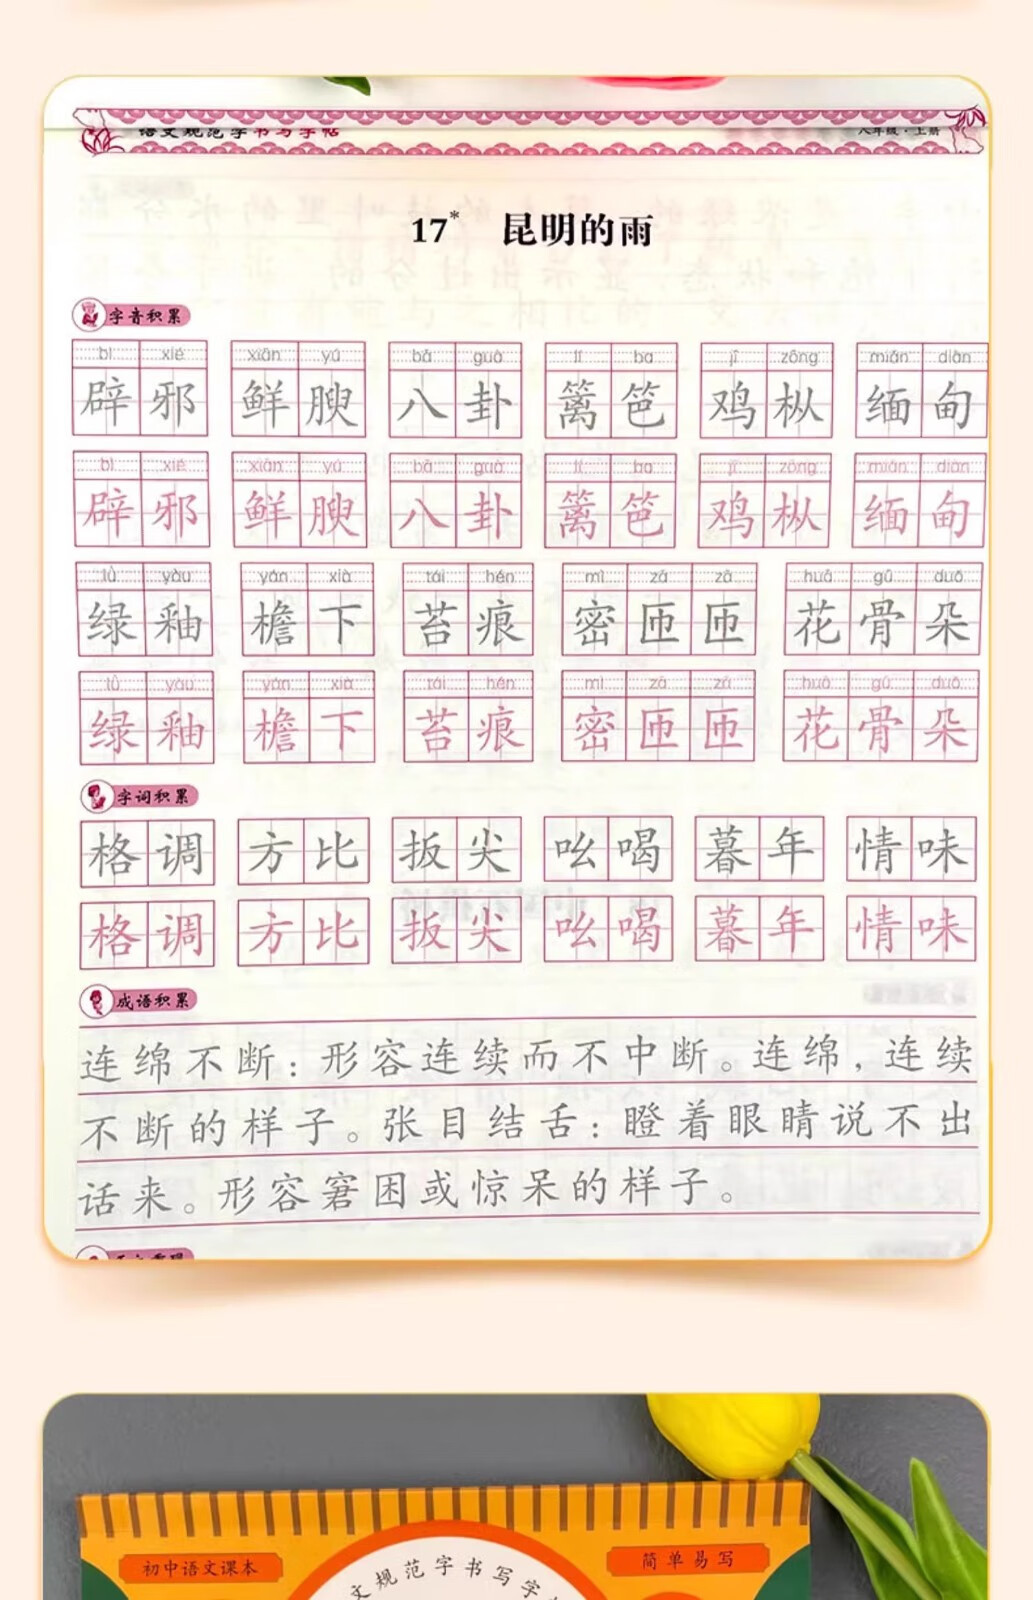 语文规范字书写字帖 八年级·上册
17* 昆明的雨
字音积累
bì xié xiān yú bā guà lí ba jī zōng miǎn diàn
辟邪 鲜腴 八卦 篱笆 鸡枞 缅甸
bì xié xiān yú bā guà lí ba jī zōng miǎn diàn
辟邪 鲜腴 八卦 篱笆 鸡枞 缅甸
lǜ yòu yán xià tái hén mì zā zā huā gū duǒ
绿釉 檐下 苔痕 密匝匝 花骨朵
lǜ yòu yán xià tái hén mì zā zā huā gū duǒ
绿釉 檐下 苔痕 密匝匝 花骨朵
字词积累
格调 方比 扳尖 吆喝 暮年 情味
格调 方比 扳尖 吆喝 暮年 情味
成语积累
连绵不断：形容连续而不中断。连绵，连续
不断的样子。张目结舌：瞪着眼睛说不出
话来。形容窘困或惊呆的样子。
初中语文课本 简单易写
文规范字书写字